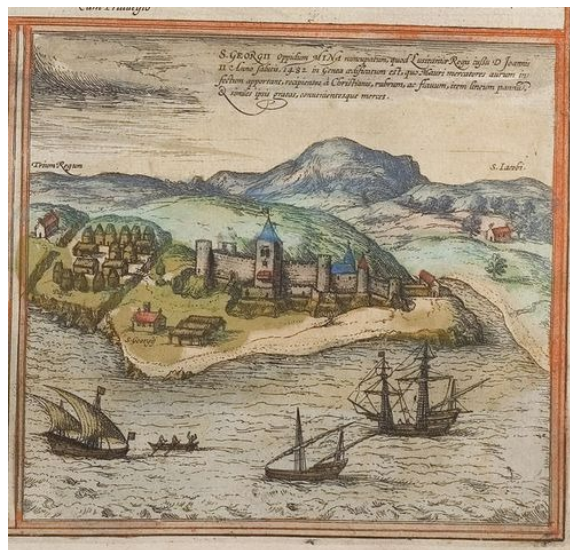 Cum Privilegio
S. GEORGII oppidum MINA nuncupatum, quod Lusitaniæ Regis iussu D Joannis
II. Anno salutis, 1482 in Genea ædificatum est, quo Mauri mercatores aurum in-
fectum apportant, recipientes à Christianis, rubrum, ac flauum, item lineum pannum,
similes ipsis gratas, conuenientesque merces.
Trium Regum
S. Iacobi.
S. Georgij